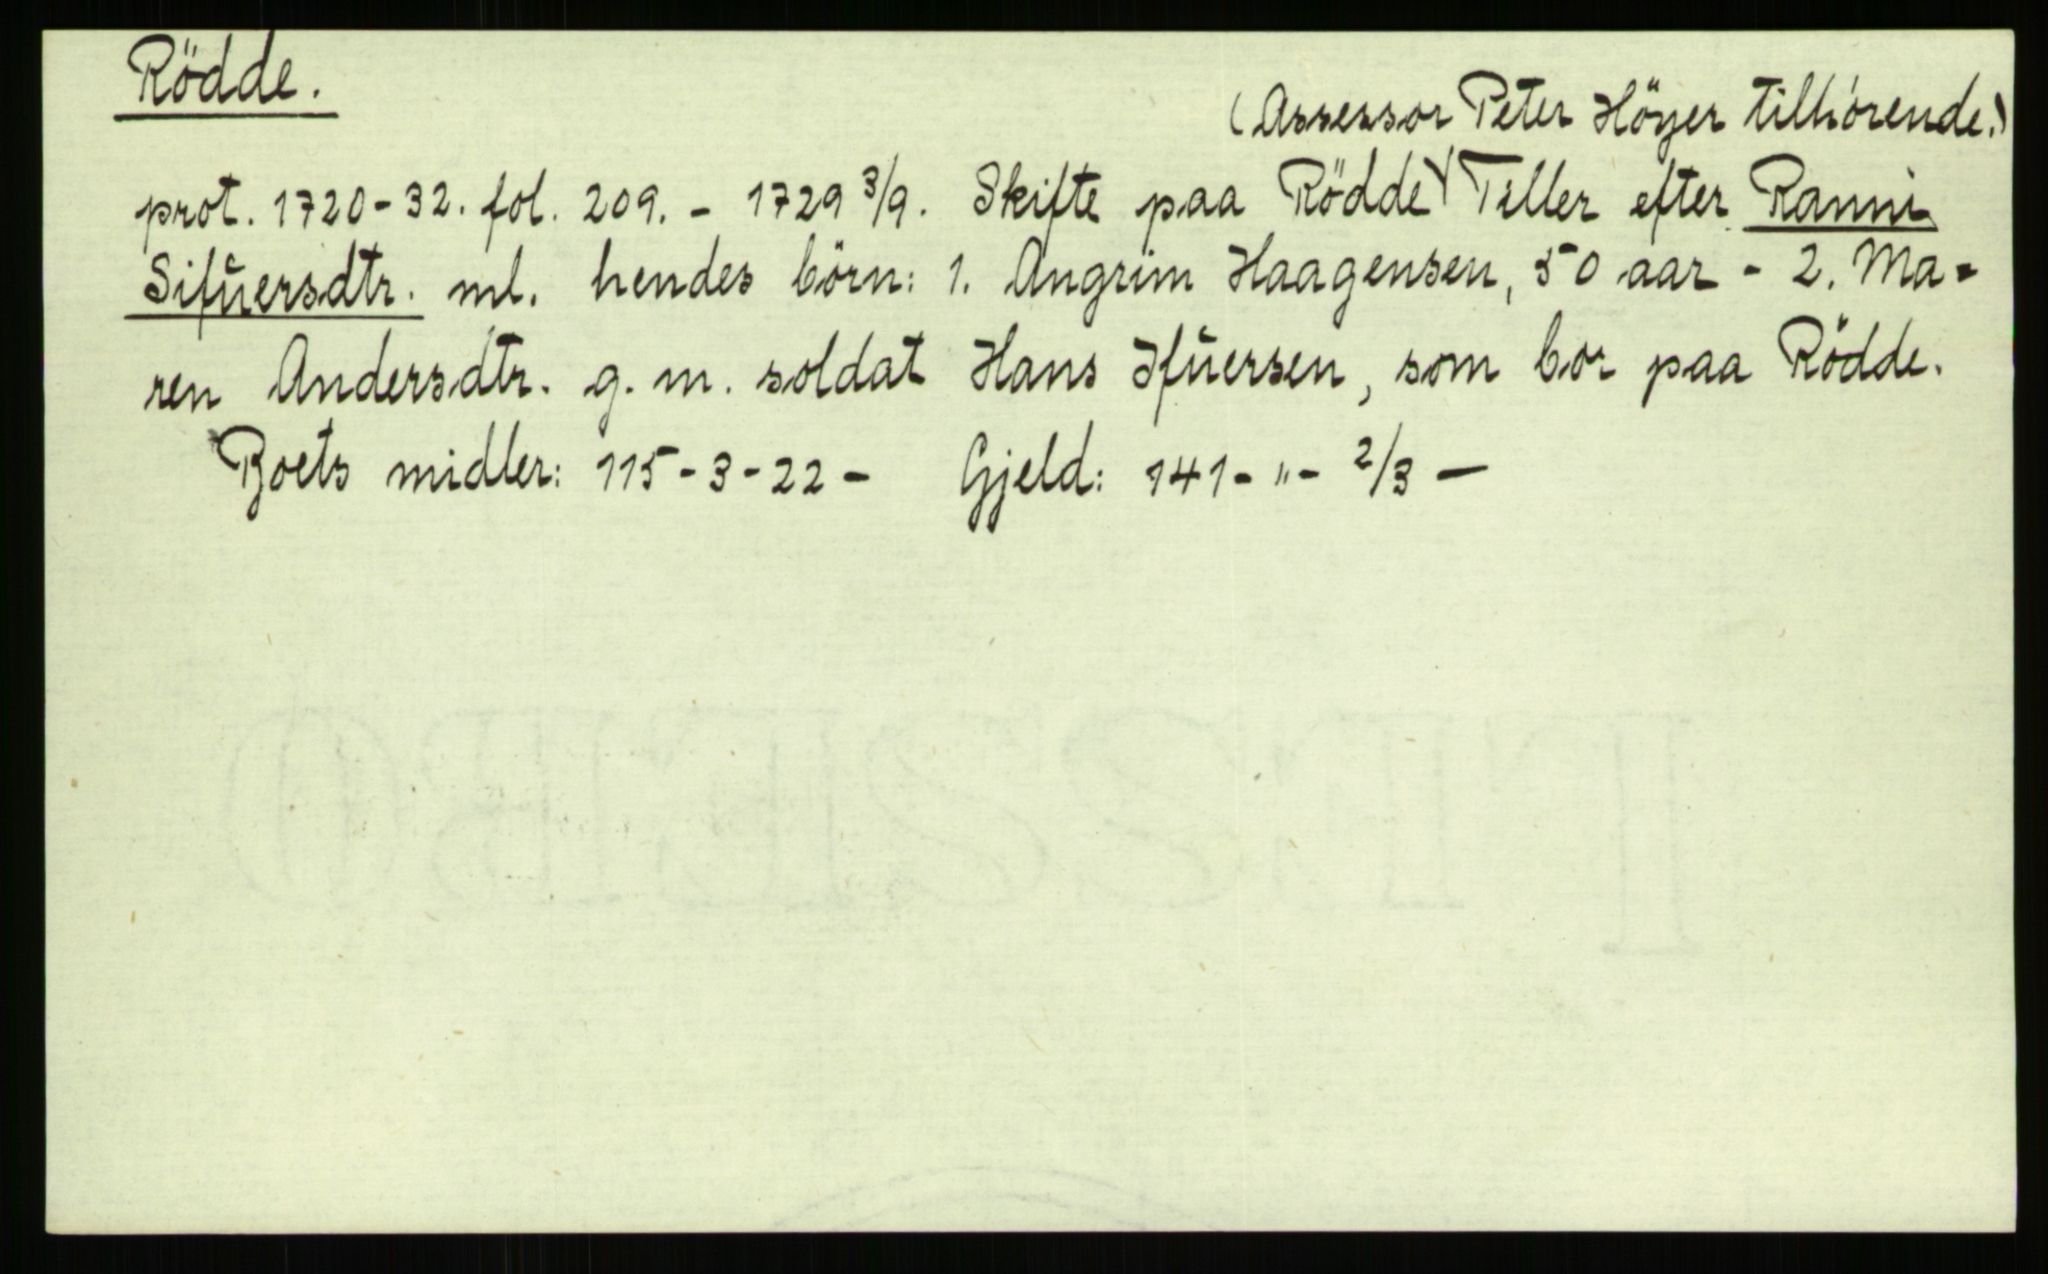 Rödde.
(Assessor Peter Höyer tilhörende.)
prot. 1720-32. fol. 209. - 1729 3/9. Skifte paa Rödde Tiller efter Ranni
Sifŭersdtr. ml. hendes börn: 1. Angrim Haagensen, 50 aar - 2. Ma=
ren Andersdtr. g. m. soldat Hans Ifŭersen, som bor paa Rödde.
Boets midler: 115-3-22- Gjeld: 141-"- 2/3 —